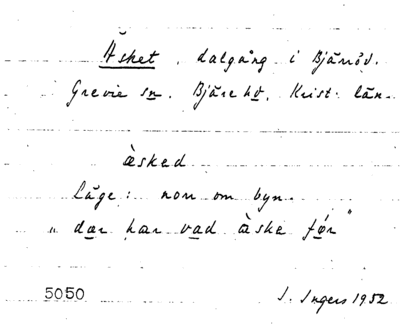 Äsket, dalgång i Bjäröd.
Grevie sn. Bjäre hd, Krist. län.
äsked
Läge: norr om byn.
"dær har vad äske før"
5050 I. Ingers 1952